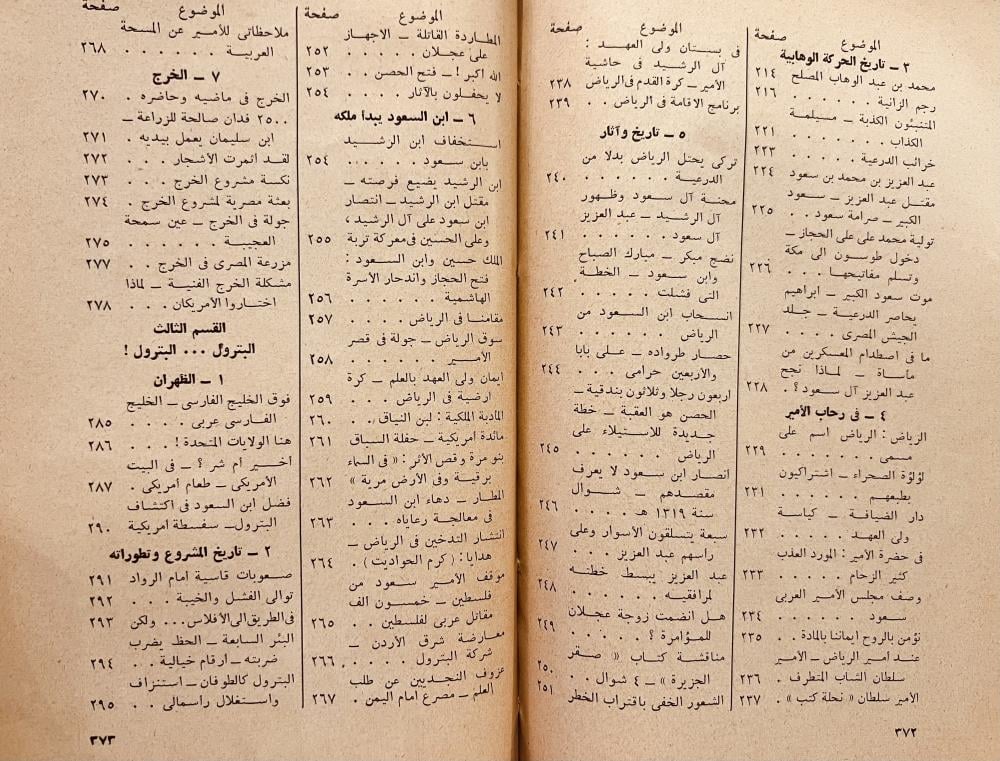 الموضوع صفحة
٣ ــ تاريخ الحركة الوهابية
محمد بن عبد الوهاب المصلح ٢١٤
رجم الزانية . . . . . . ٢١٦
المتنبئون الكذبة ــ مسيلمة
الكذاب . . . . . . . ٢٢١
خرائب الدرعية . . . . . ٢٢٣
عبد العزيز بن محمد بن سعود ٢٢٤
مقتل عبد العزيز ــ سعود
الكبير ــ صرامة سعود . . ٢٢٥
تولية محمد على على الحجاز ــ
دخول طوسون الى مكة
وتسلم مفاتيحها . . . . ٢٢٦
موت سعود الكبير ــ ابراهيم
يحاصر الدرعية ــ جلد
الجيش المصرى . . . . ٢٢٧
ما فى اصطدام المعسكرين من
مأساة ــ لماذا نجح
عبد العزيز آل سعود؟ . ٢٢٨
٤ ــ فى رحاب الأمير
الرياض : الرياض اسم على
مسمى . . . . . . . ٢٢٩
لؤلؤة الصحراء ــ اشتراكيون
بطبعهم . . . . . . ٢٣١
دار الضيافة ــ كياسة
ولى العهد . . . . . ٢٣٢
فى حضرة الأمير : المورد العذب
كثير الزحام . . . . ٢٣٣
وصف مجلس الأمير العربى
سعود . . . . . . . ٢٣٤
نؤمن بالروح ايماننا بالمادة . . ٢٣٥
عند أمير الرياض ــ الأمير
سلطان الشاب المتطرف . ٢٣٦
الأمير سلطان « نحلة كتب » . ٢٣٧
الموضوع صفحة
فى بستان ولى العهد :
آل الرشيد فى حاشية
الأمير ــ كرة القدم فى الرياض ٢٣٨
برنامج الاقامة فى الرياض . . ٢٣٩
٥ ــ تاريخ وآثار
تركى يحتل الرياض بدلا من
الدرعية . . . . . . ٢٤٠
محنة آل سعود وظهور
آل الرشيد ــ عبد العزيز
آل سعود . . . . . . ٢٤١
نضج مبكر ــ مبارك الصباح
وابن سعود ــ الخطة
التى فشلت . . . . . ٢٤٢
انسحاب ابن السعود من
الرياض . . . . . . ٢٤٣
حصار طرواده ــ على بابا
والأربعين حرامى . . . ٢٤٤
اربعون رجلا وثلاثون بندقية ــ
الحصن هو العقبة ــ خطة
جديدة للاستيلاء على
الرياض . . . . . . ٢٤٥
أنصار ابن سعود لا يعرف
مقصدهم ــ شوال
سنة ١٣١٩ هـ . . . . ٢٤٦
سبعة يتسلقون الأسوار وعلى
رأسهم عبد العزيز . . ٢٤٧
عبد العزيز يبسط خطته
لمرافقيه . . . . . . ٢٤٨
هل انضمت زوجة عجلان
للمؤامرة ؟ . . . . . ٢٤٩
مناقشة كتاب « صقر
الجزيرة » ــ ٤ شوال . . ٢٥٠
الشعور الخفى باقتراب الخطر ٢٥١
٣٧٢
الموضوع صفحة
المطاردة القاتلة ــ الاجهاز
على عجلان . . . . . ٢٥٢
الله أكبر ! ــ فتح الحصن . . ٢٥٣
لا يحفلون بالآثار . . . . ٢٥٤
٦ ــ ابن السعود يبدأ ملكه
استخفاف ابن الرشيد
بابن سعود . . . . . ٢٥٤
ابن الرشيد يضيع فرصته ــ
مقتل ابن الرشيد ــ انتصار
ابن سعود على آل الرشيد ،
وعلى الحسين فى معركة تربة ٢٥٥
الملك حسين وابن السعود :
فتح الحجاز واندحار الأسرة
الهاشمية . . . . . . ٢٥٦
مقامنا فى الرياض . . . . ٢٥٧
سوق الرياض ــ جولة فى قصر
الأمير . . . . . . . ٢٥٨
ايمان ولى العهد بالعلم ــ كرة
ارضية فى الرياض . . . ٢٥٩
المأدبة الملكية : لبن النياق . . ٢٦٠
مائدة أمريكية ــ حفلة السباق ٢٦١
بنو مرة وقص الأثر : « فى السماء
برقية وفى الأرض مرية » ٢٦٢
المطار ــ دهاء ابن السعود
فى معالجة رعاياه . . . ٢٦٣
انتشار التدخين فى الرياض ــ
هدايا : ( كرم الحواديت ) . ٢٦٤
موقف الأمير سعود من
فلسطين ــ خمسون الف
مقاتل عربى لفلسطين . . ٢٦٥
معارضة شرق الأردن ــ
شركة البترول . . . . . ٢٦٦
عزوف النجديين عن طلب
العلم ــ مصرع امام اليمن . ٢٦٧
الموضوع صفحة
ملاحظاتى للأمير عن المسحة
العربية . . . . . . ٢٦٨
٧ ــ الخرج
الخرج فى ماضيه وحاضره . ٢٧٠
٢٥٠٠ فدان صالحة للزراعة ــ
ابن سليمان يعمل بيديه . ٢٧١
لقد اثمرت الأشجار . . . ٢٧٢
نكسة مشروع الخرج . . . ٢٧٣
بعثة مصرية لمشروع الخرج . ٢٧٤
جولة فى الخرج ــ عين سمحة
العجيبة . . . . . . ٢٧٥
مزرعة المصرى فى الخرج . . ٢٧٧
مشكلة الخرج الفنية ــ لماذا
اختاروا الأمريكان . . . ٢٧٨
القسم الثالث
البترول ... البترول !
١ ــ الظهران
فوق الخليج الفارسى ــ الخليج
الفارسى عربى . . . . ٢٨٥
هنا الولايات المتحدة ! . . . ٢٨٦
أخير أم شر ؟ ــ فى البيت
الأمريكى ــ طعام أمريكى . ٢٨٧
فضل ابن السعود فى اكتشاف
البترول ــ سفسطة امريكية ٢٩٠
٢ ــ تاريخ المشروع وتطوراته
صعوبات قاسية أمام الرواد ٢٩١
توالى الفشل والخيبة . . . ٢٩٢
فى الطريق الى الأفلاس... ولكن ٢٩٣
البئر السابعة ــ الحظ يضرب
ضربته ــ أرقام خيالية . . ٢٩٤
البترول كالطوفان ــ استنزاف
واستغلال رأسمالى . . ٢٩٥
٣٧٣